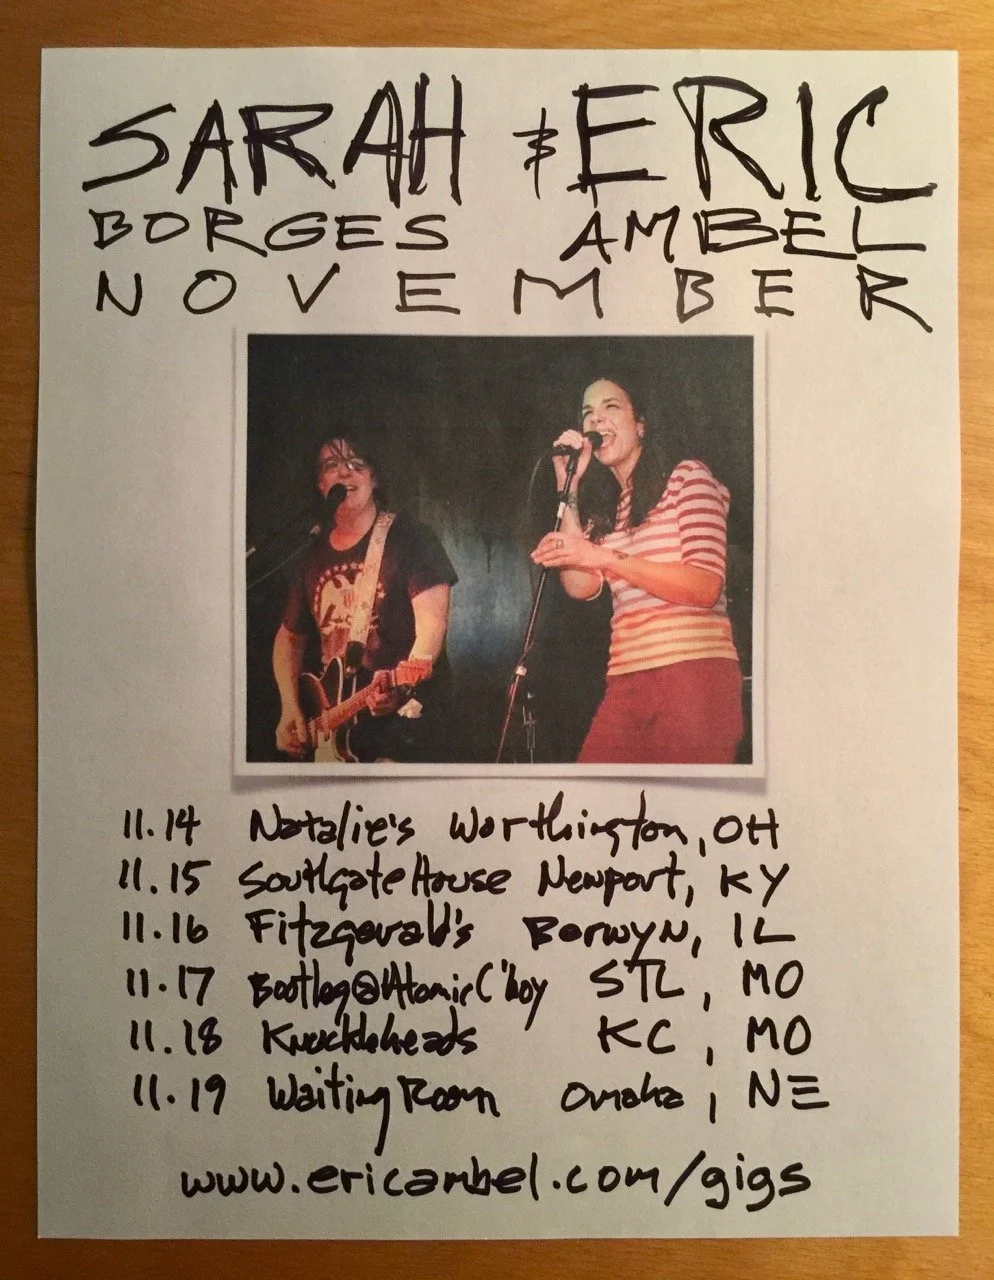 SARAH & ERIC
BORGES AMBEL
NOVEMBER
11.14 Natalie's Worthington, OH
11.15 Southgate House Newport, KY
11.16 Fitzgerald's Berwyn, IL
11.17 Bootleg@Atomic C'boy STL, MO
11.18 Knuckleheads KC, MO
11.19 Waiting Room Omaha, NE
www.ericambel.com/gigs